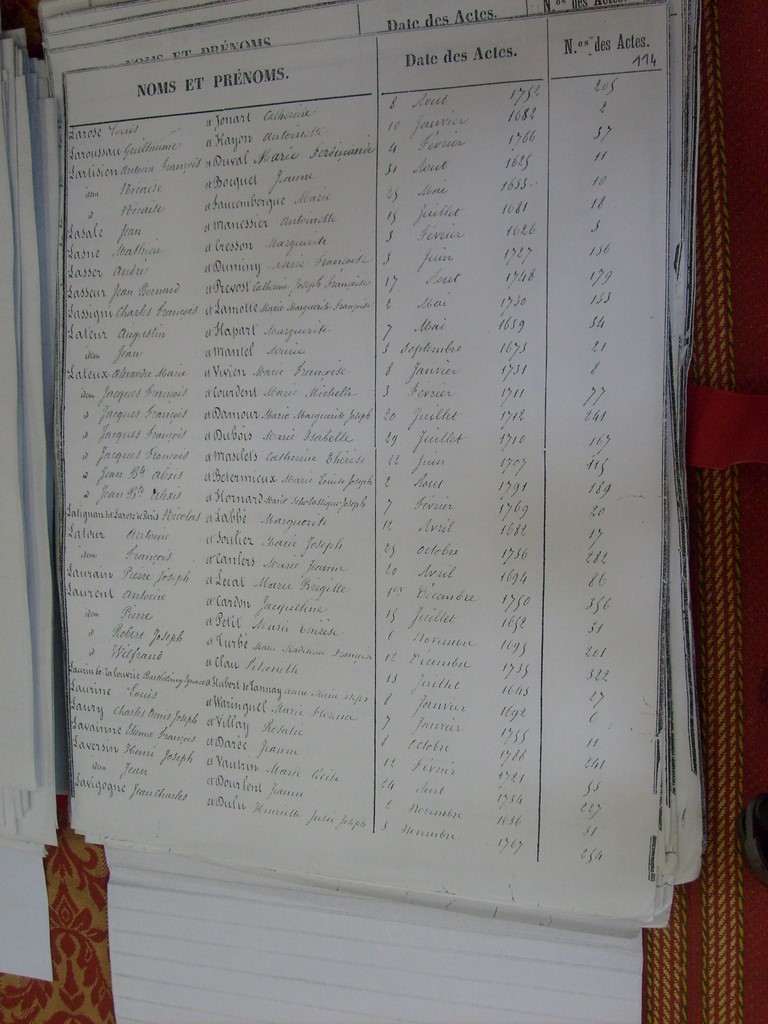 Date des Actes.
N.os des Actes.
NOMS ET PRÉNOMS
NOMS ET PRÉNOMS. Date des Actes. N.os des Actes.
114
Larose Louis et Jonart Catherine 8 Aout 1752 205
Laroussau Guillaume et Hayon Antoinette 10 Janvier 1682 2
Lartisien Antoine François et Duval Marie Ferdinande 4 Février 1766 37
idem Nicaise et Bocquet Jeanne 31 Aout 1625 11
d° Nicaise et Faucembergue Marie 25 Mai 1635 10
Lasale Jean et Manessier Antoinette 15 Juillet 1681 18
Lasne Mathieu et Cresson Marguerite 3 Février 1626 3
Lasser André et Duminy Marie Françoise 3 Juin 1727 136
Lasseur Jean Bernard et Prevost Catherine Joseph Françoise 17 Aout 1748 179
Lassigni Charles François et Lamotte Marie Marguerite Françoise 2 Mai 1730 133
Lateur Augustin et Hapart Marguerite 7 Mai 1659 34
idem Jean et Mantel Marie 3 Septembre 1673 21
Lateux Alexandre Marie et Vivien Marie Françoise 8 Janvier 1731 8
idem Jacques François et Courdent Marie Michelle 3 Février 1711 77
d° Jacques François et Damour Marie Marguerite Joseph 20 Juillet 1712 241
d° Jacques François et Dubois Marie Isabelle 29 Juillet 1710 167
d° Jacques François et Maselets Catherine Thérèse 22 Juin 1707 115
d° Jean Bte Alexis et Betermieux Marie Louise Joseph 2 Aout 1791 189
d° Jean Bte Alexis et Hornard Marie Scholastique Joseph 7 Février 1769 20
Nicolas et Labbé Marguerite 12 Avril 1682 17
Latour Antoine et Soulier Marie Joseph 25 Octobre 1736 282
idem François et Canlers Marie Jeanne 20 Avril 1694 86
Laurain Pierre Joseph et Leval Marie Brigitte 1er Décembre 1750 356
Laurent Antoine et Cardon Jacqueline 15 Juillet 1652 31
idem Pierre et Petit Marie 6 Novembre 1695 201
d° Robert Joseph et Turbé Marie Madeleine Françoise 12 Décembre 1735 322
d° Wilfrand et Clau Petronelle 13 Juillet 1645 27
Laurin Barthélemy Ignace et Hubert de Tannay Anne Marie 8 Janvier 1692 6
Laurine Louis et Waringuel Marie 7 Janvier 1755 11
Laury Charles Denis Joseph et Villay Rosalie 8 Octobre 1786 241
Lavainne Etienne François et Darée Jeanne 12 Février 1721 53
Laversin Henri Joseph et Vautrin Marie Cécile 24 Aout 1734 227
idem Jean et Dourlent Jeanne 2 Novembre 1636 31
Lavigogne Jean Charles et Dulu Henriette Julie Joseph 3 Novembre 1767 254